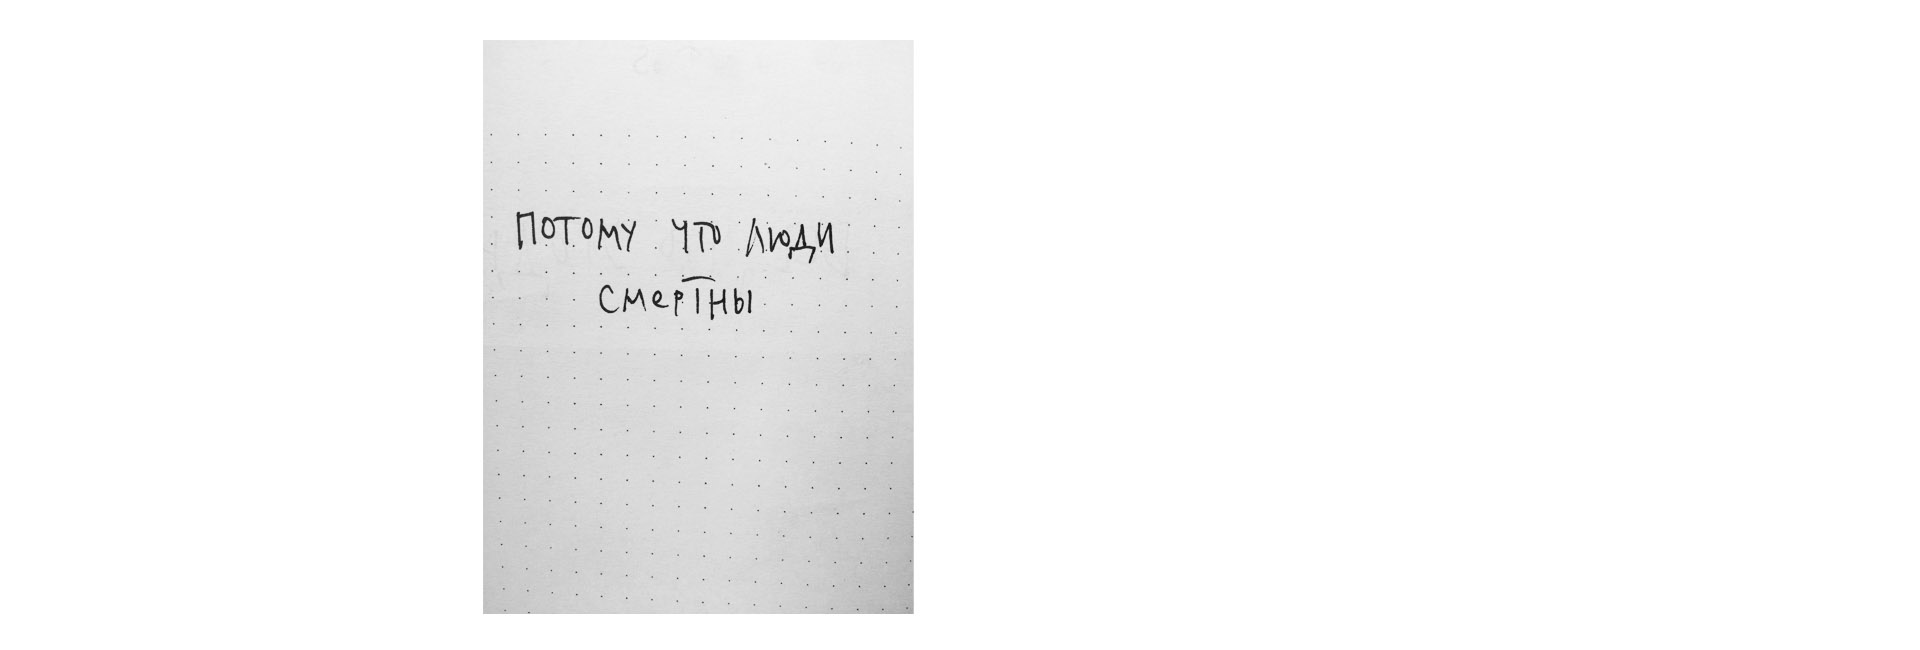 Потому что люди
смертны